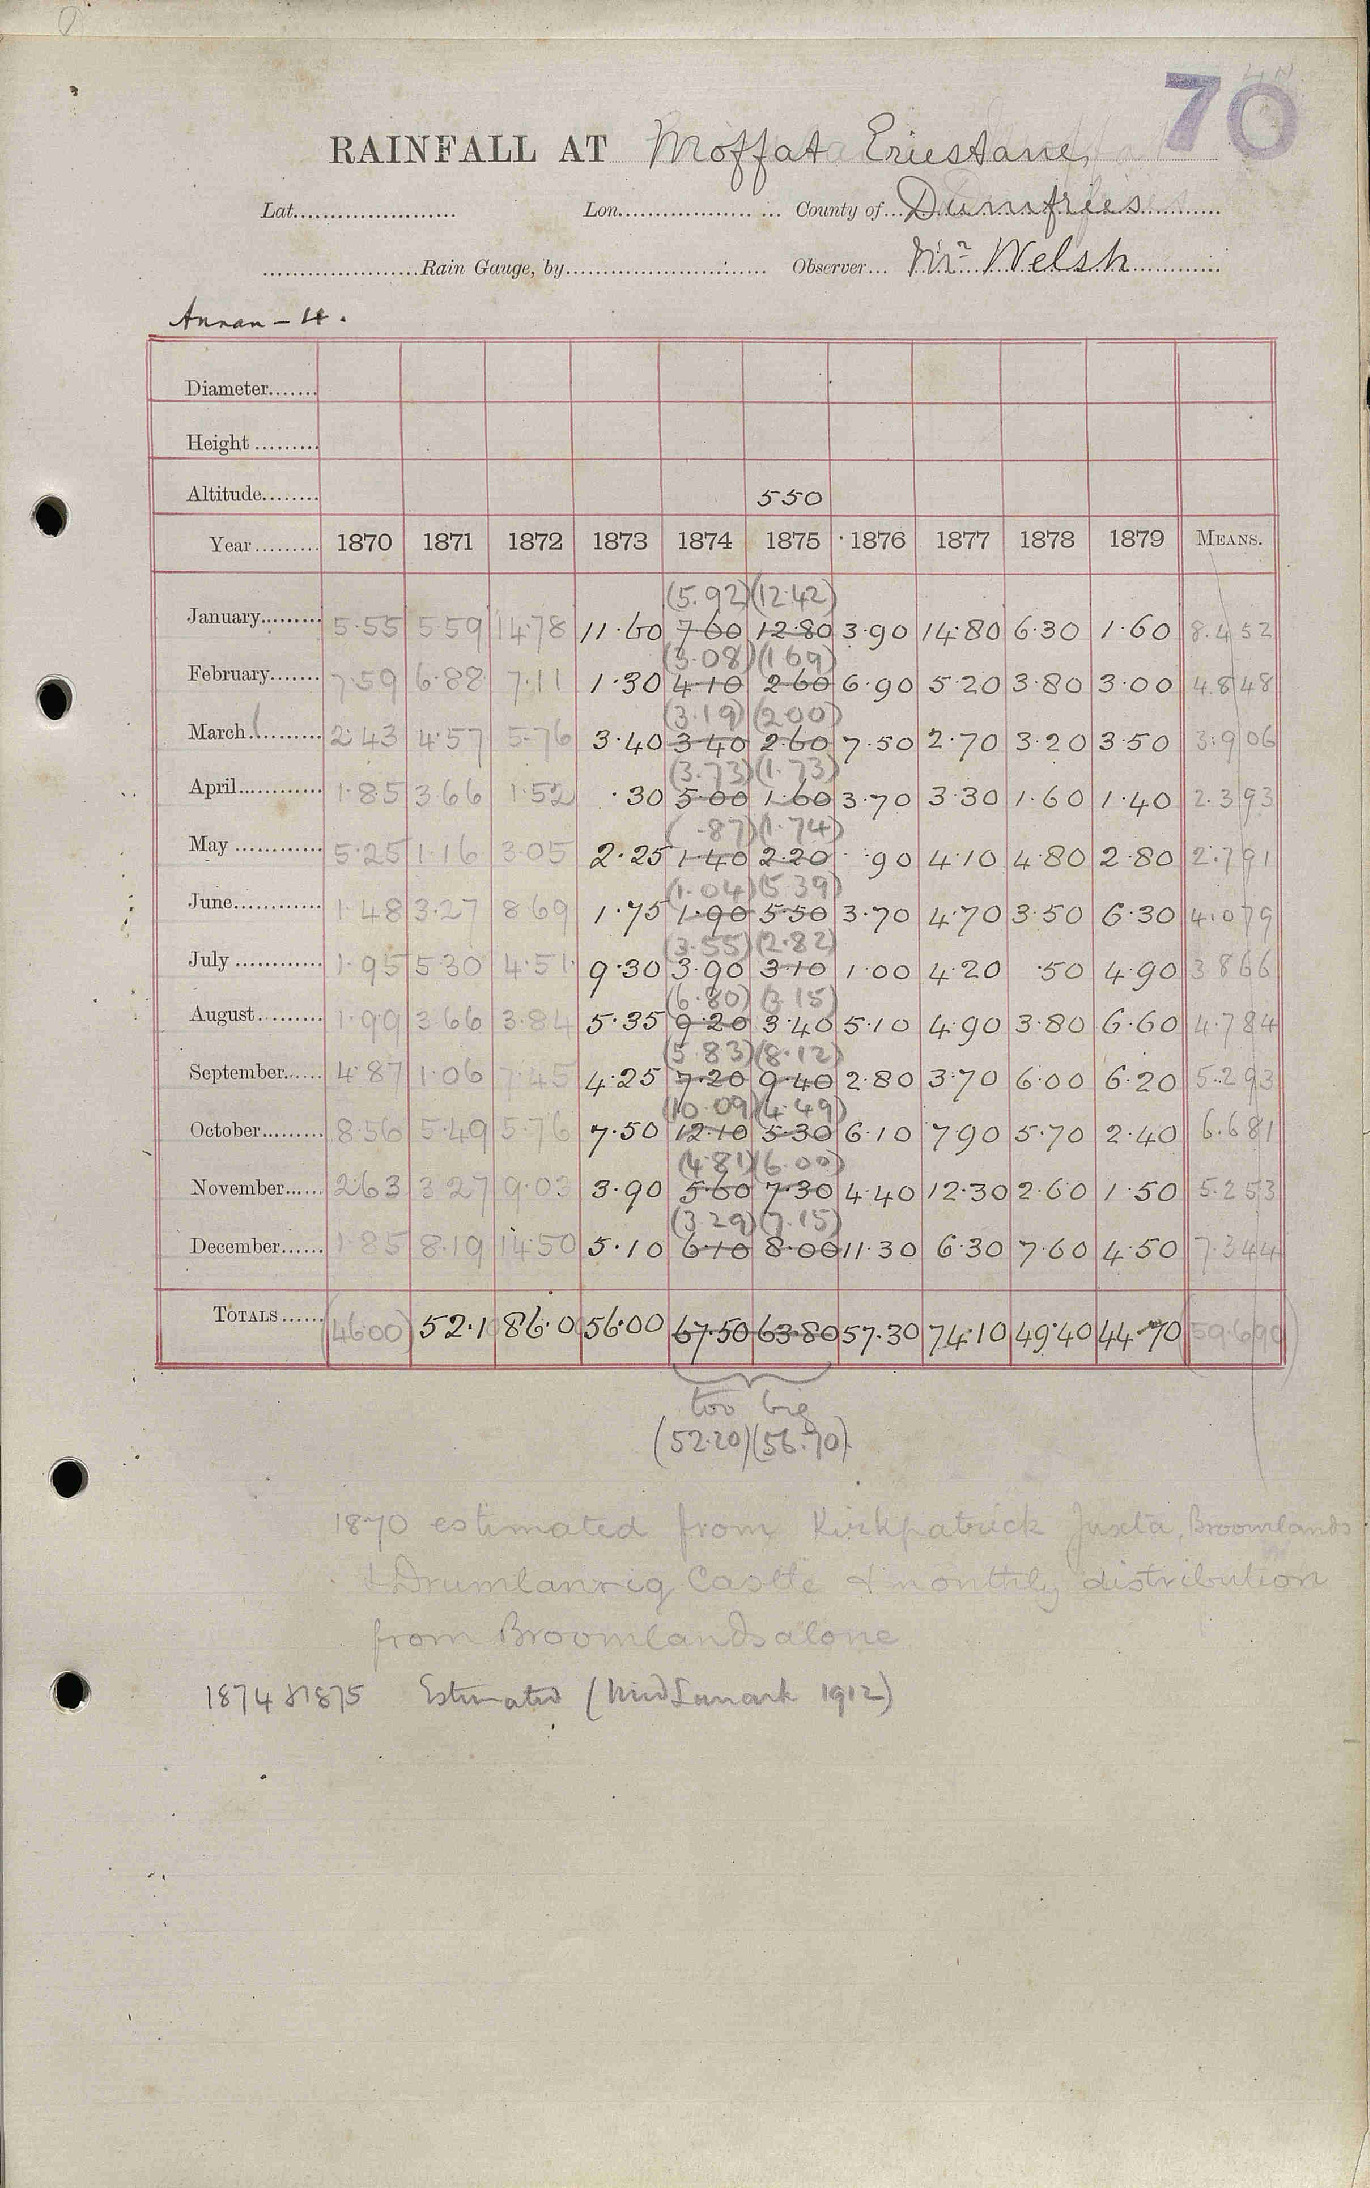 70
RAINFALL AT Moffat Eriestane,
Lat. Lon. County of Dumfries
Rain Gauge, by Observer Mr Welsh
Annan - 4.
Diameter
Height
Altitude 550
Year 1870 1871 1872 1873 1874 1875 1876 1877 1878 1879 MEANS.
(5.92) (12.42)
January 5.55 5.59 14.78 11.60 7.60 12.80 3.90 14.80 6.30 1.60 8.452
(3.08) (1.69)
February 7.59 6.88 7.11 1.30 4.10 2.60 6.90 5.20 3.80 3.00 4.848
(3.19) (2.00)
March 2.43 4.57 5.76 3.40 3.40 2.60 7.50 2.70 3.20 3.50 3.906
(3.73) (1.73)
April 1.85 3.66 1.52 .30 5.00 1.60 3.70 3.30 1.60 1.40 2.393
(.87) (1.74)
May 5.25 1.16 3.05 2.25 1.40 2.20 .90 4.10 4.80 2.80 2.791
(1.04) (5.39)
June 1.48 3.27 8.69 1.75 1.90 5.50 3.70 4.70 3.50 6.30 4.079
(3.55) (2.82)
July 1.95 5.30 4.51 9.30 3.90 3.10 1.00 4.20 .50 4.90 3.866
(6.80) (3.15)
August 1.99 3.66 3.84 5.35 9.20 3.40 5.10 4.90 3.80 6.60 4.784
(5.83) (8.12)
September 4.87 1.06 7.45 4.25 7.20 9.40 2.80 3.70 6.00 6.20 5.293
(10.09) (4.49)
October 8.56 5.49 5.76 7.50 12.10 5.30 6.10 7.90 5.70 2.40 6.681
(4.81) (6.00)
November 2.63 3.27 9.03 3.90 5.60 7.30 4.40 12.30 2.60 1.50 5.253
(3.29) (7.15)
December 1.85 8.19 14.50 5.10 6.10 8.00 11.30 6.30 7.60 4.50 7.344
TOTALS (46.00) 52.10 86.0 56.00 67.50 63.80 57.30 74.10 49.40 44.70 (59.690)
too big
(52.20) (56.70)
1870 estimated from Kirkpatrick Juxta, Broomlands
& Drumlanrig Castle & monthly distribution
from Broomlands alone
1874 & 1875 Estimated (Mid Lanark 1912)